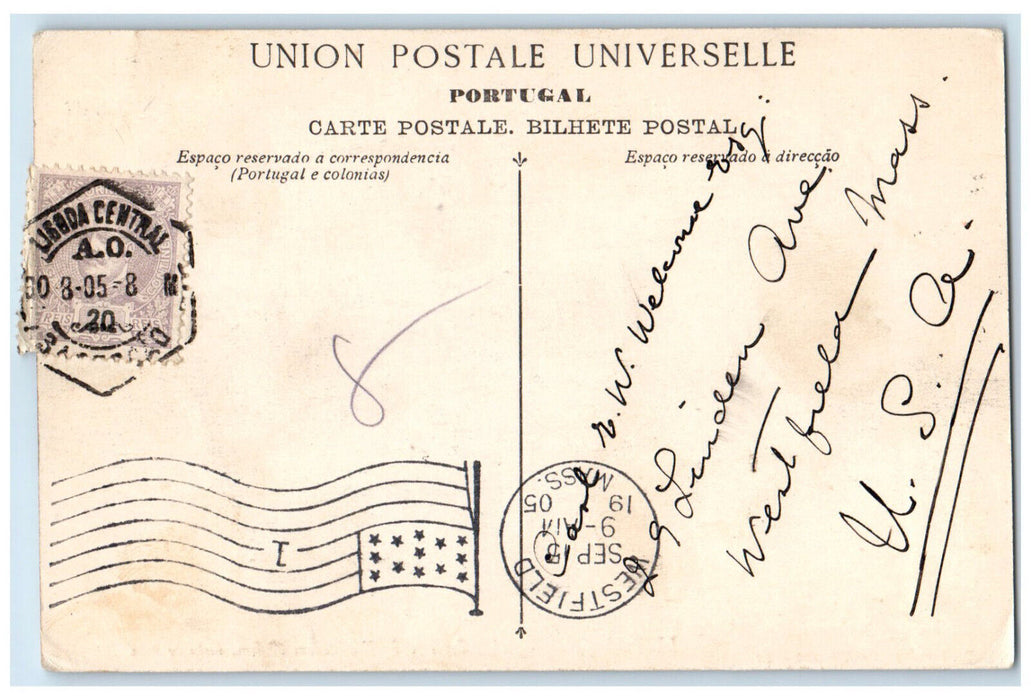 UNION POSTALE UNIVERSELLE
PORTUGAL
CARTE POSTALE. BILHETE POSTAL
Espaço reservado a correspondencia
(Portugal e colonias)
Espaço reservado á direcção
LISBOA CENTRAL
A.O.
30 8-05-8 M
20
8
Carl E. W. Welcome Esq.
29 Linden Ave.
Westfield Mass.
U. S. A.
1
WESTFIELD
SEP 15
9-AM
19 05
MASS.